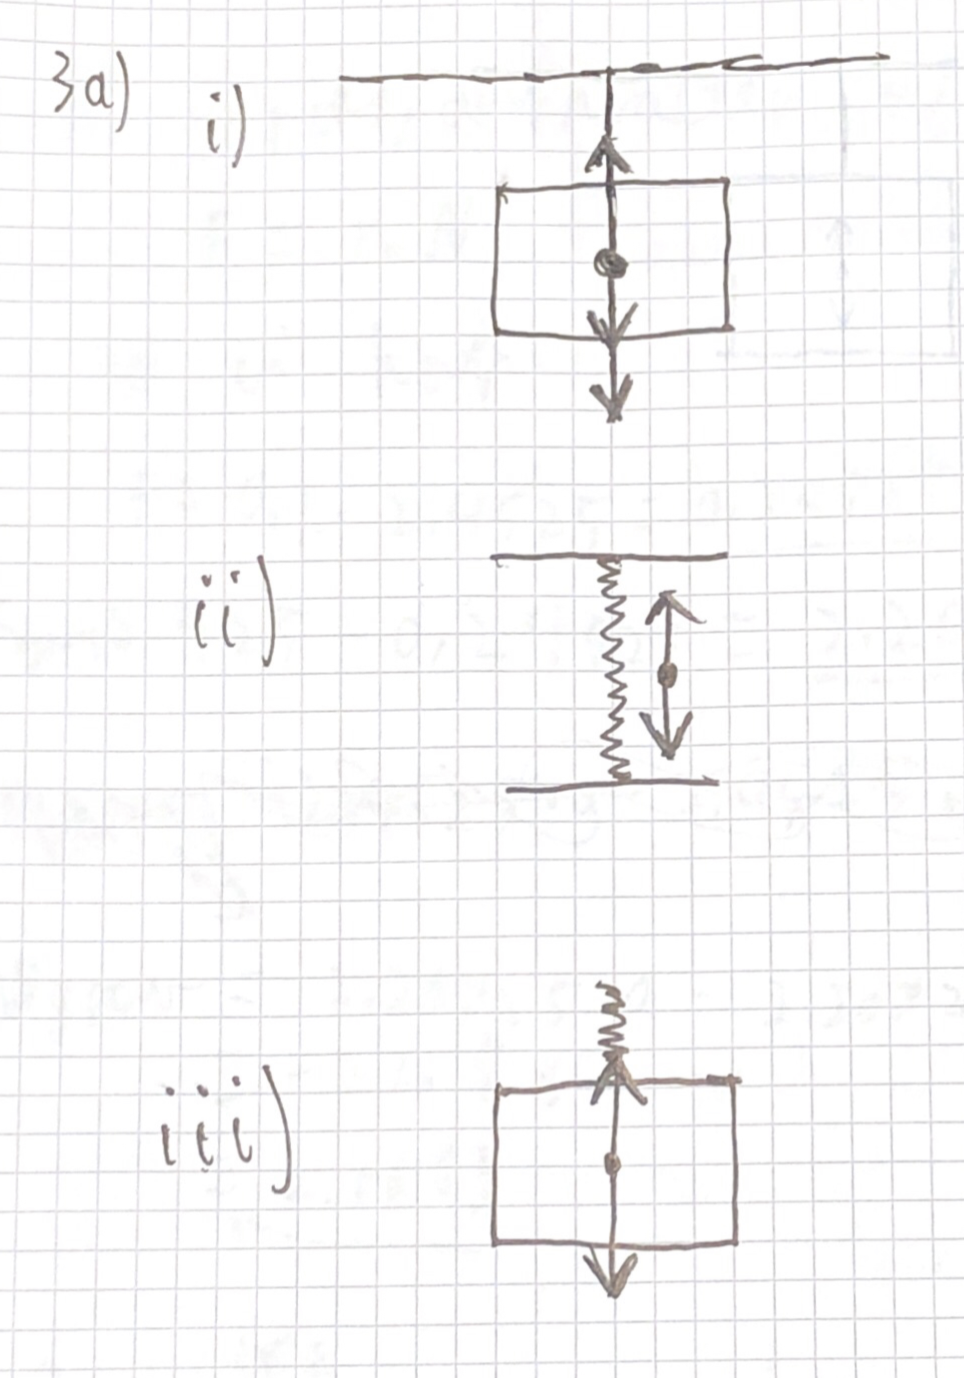 3a)
i)
ii)
iii)